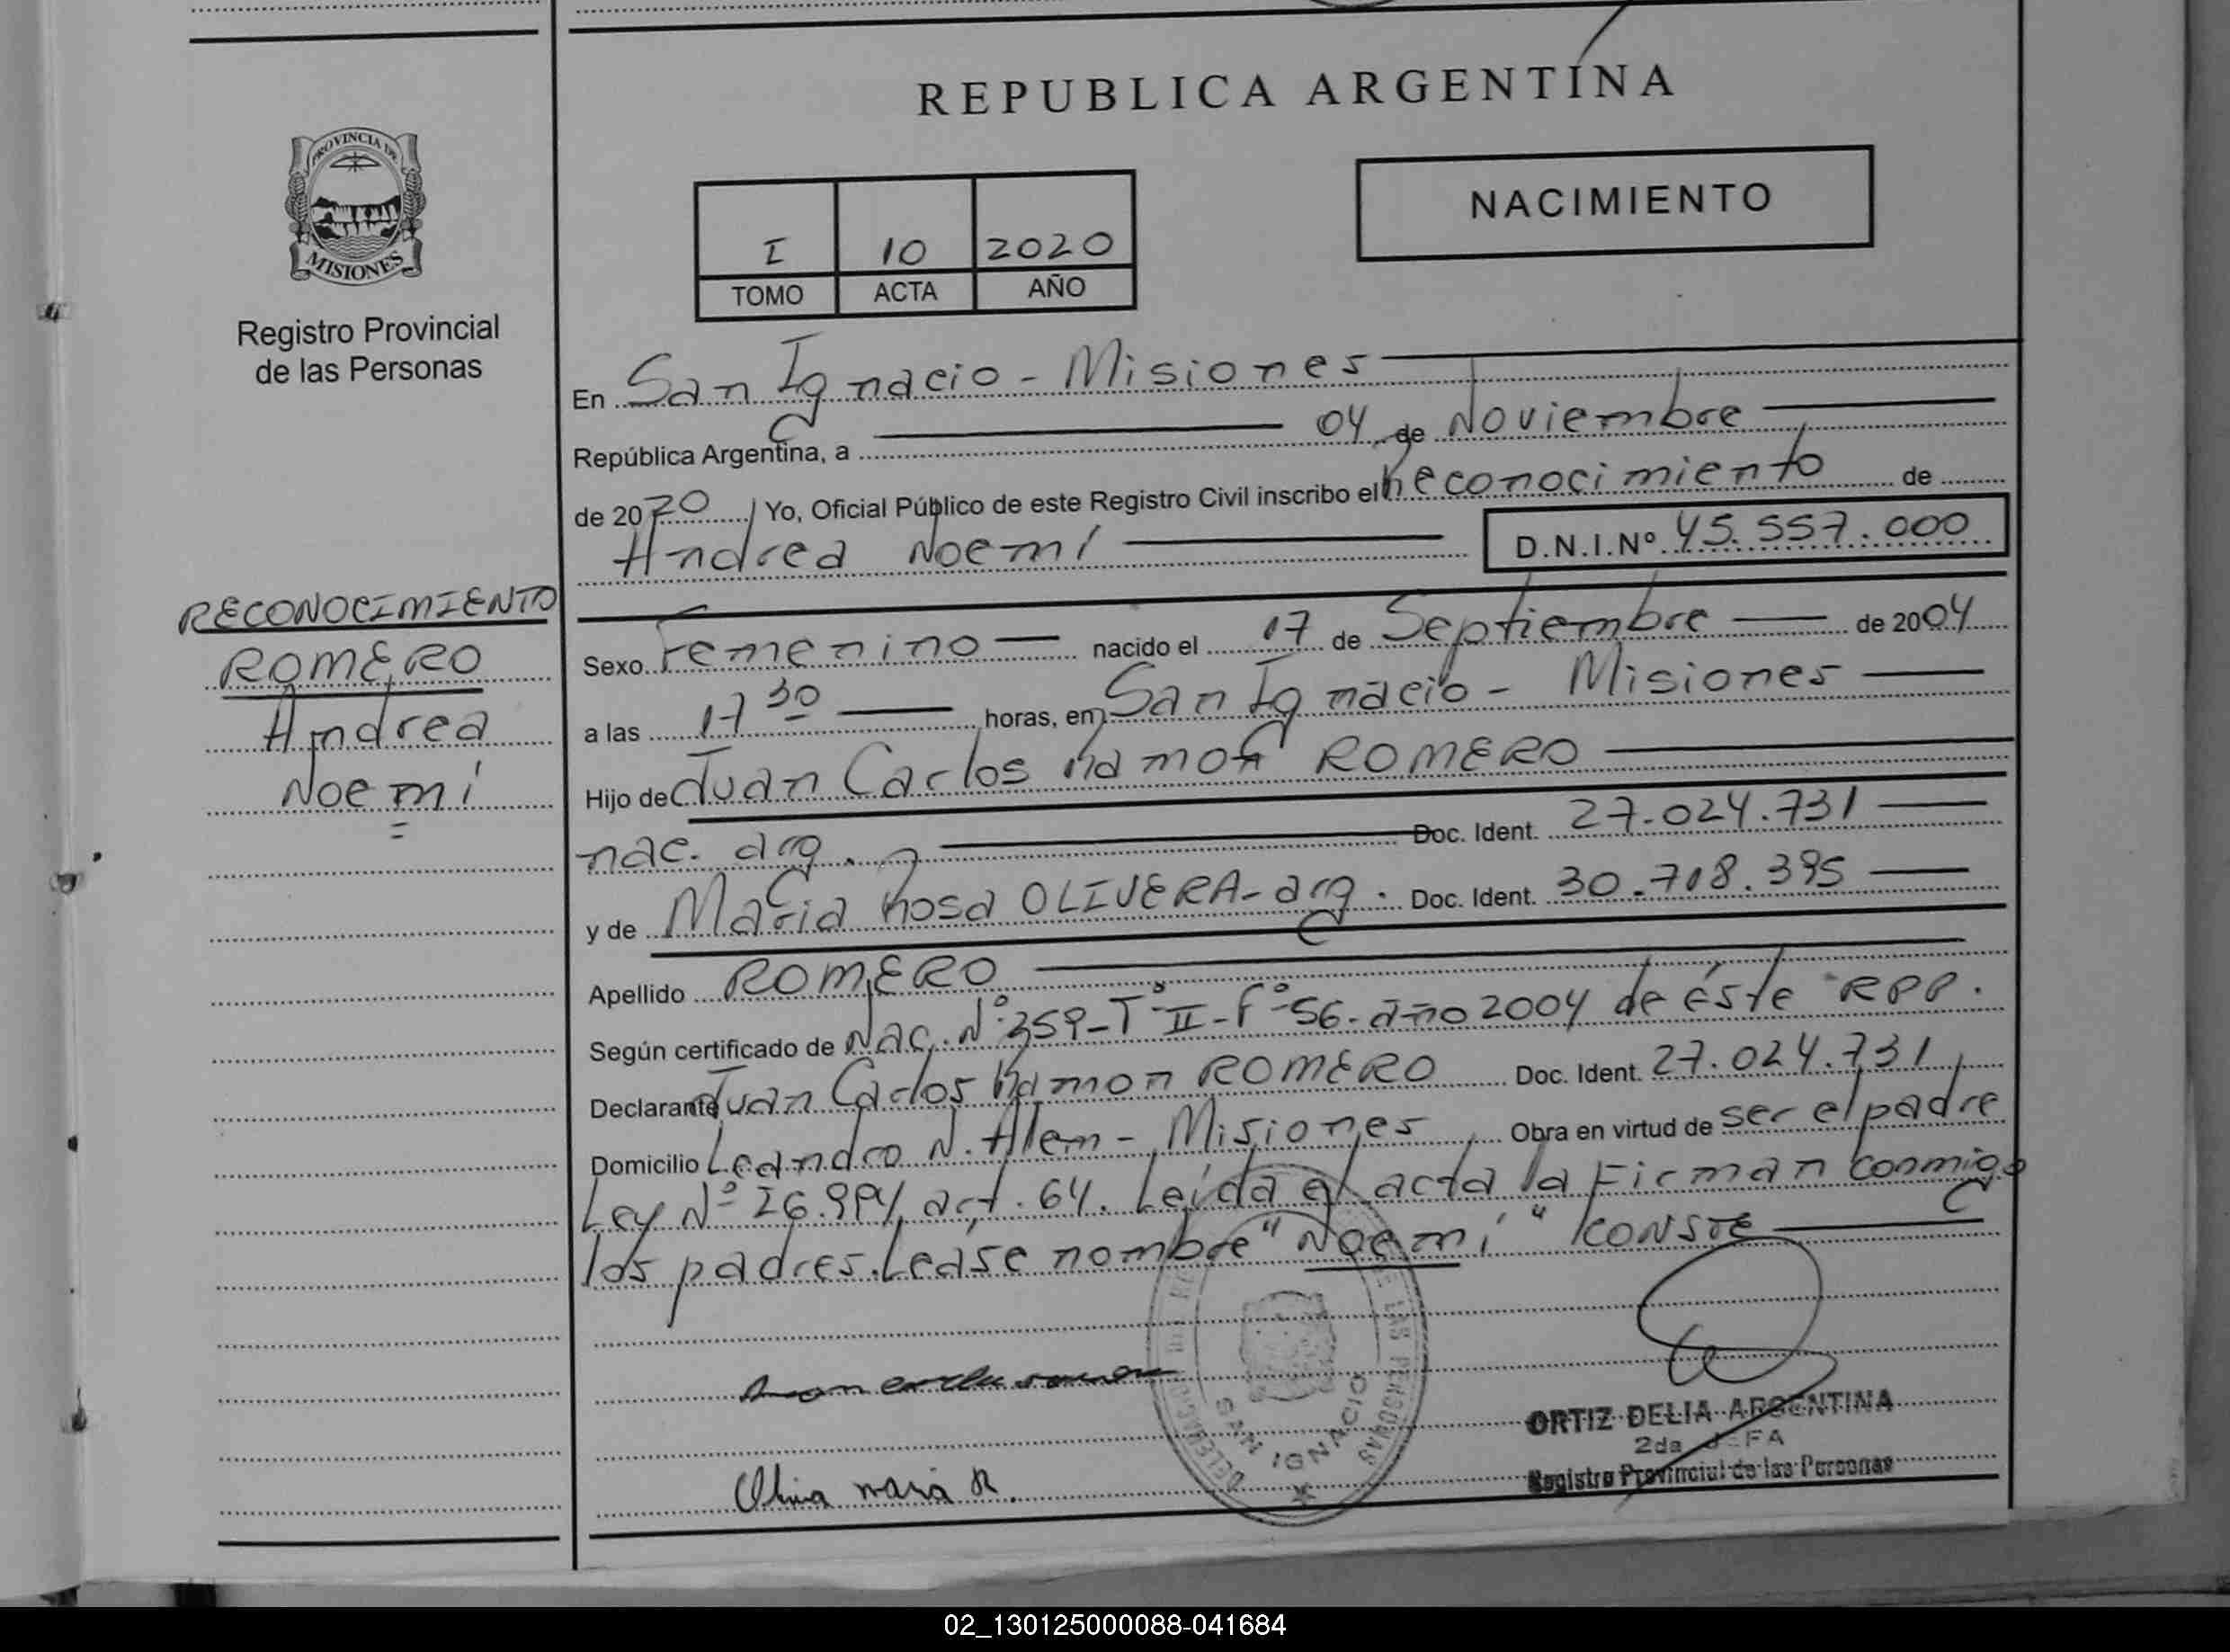 REPUBLICA ARGENTINA
PROVINCIA DE
MISIONES
Registro Provincial
de las Personas
NACIMIENTO
I 10 2020
TOMO ACTA AÑO
En San Ignacio - Misiones
República Argentina, a 04 de Noviembre
de 2020 Yo, Oficial Público de este Registro Civil inscribo el Reconocimiento de
Andrea Noemí D.N.I.Nº 45.557.000
RECONOCIMIENTO
ROMERO
Andrea
Noemí
Sexo Femenino nacido el 17 de Septiembre de 2004
a las 17 30 horas, en San Ignacio - Misiones
Hijo de Juan Carlos Ramon ROMERO
nac. arg. Doc. Ident. 27.024.731
y de Maria Rosa OLIVERA - arg. Doc. Ident. 30.718.395
Apellido ROMERO
Según certificado de Nac. Nº 359 - Tº II - Fº 56 - año 2004 de éste RPP.
Declarante Juan Carlos Ramon ROMERO Doc. Ident. 27.024.731
Domicilio Leandro N. Alem - Misiones Obra en virtud de ser el padre
Ley Nº 26.994 art. 64. Leída el acta la Firman conmigo
los padres. Leáse nombre "Noemí" CONSTE
SAN IGNACIO
DE LAS PERSONAS
ORTIZ DELIA ARGENTINA
2da JEFA
Registro Provincial de las Personas
02_130125000088-041684